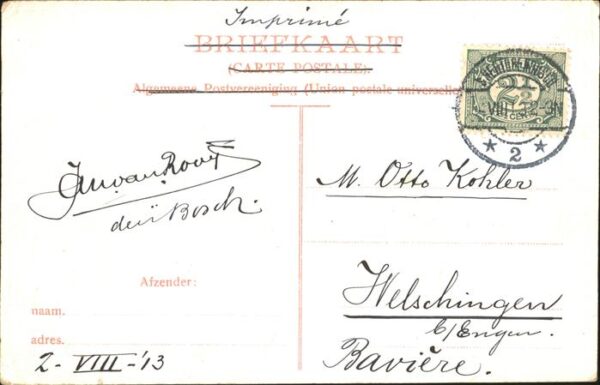 Imprimé
BRIEFKAART
(CARTE POSTALE).
Algemeene Postvereeniging (Union postale universelle
2½
CENT
VIII 2-3N
2
J.W. van Rooy
den Bosch.
M. Otto Kohler
Afzender:
Welschingen
naam.
b/Engen.
adres.
Bavière.
2-VIII-'13